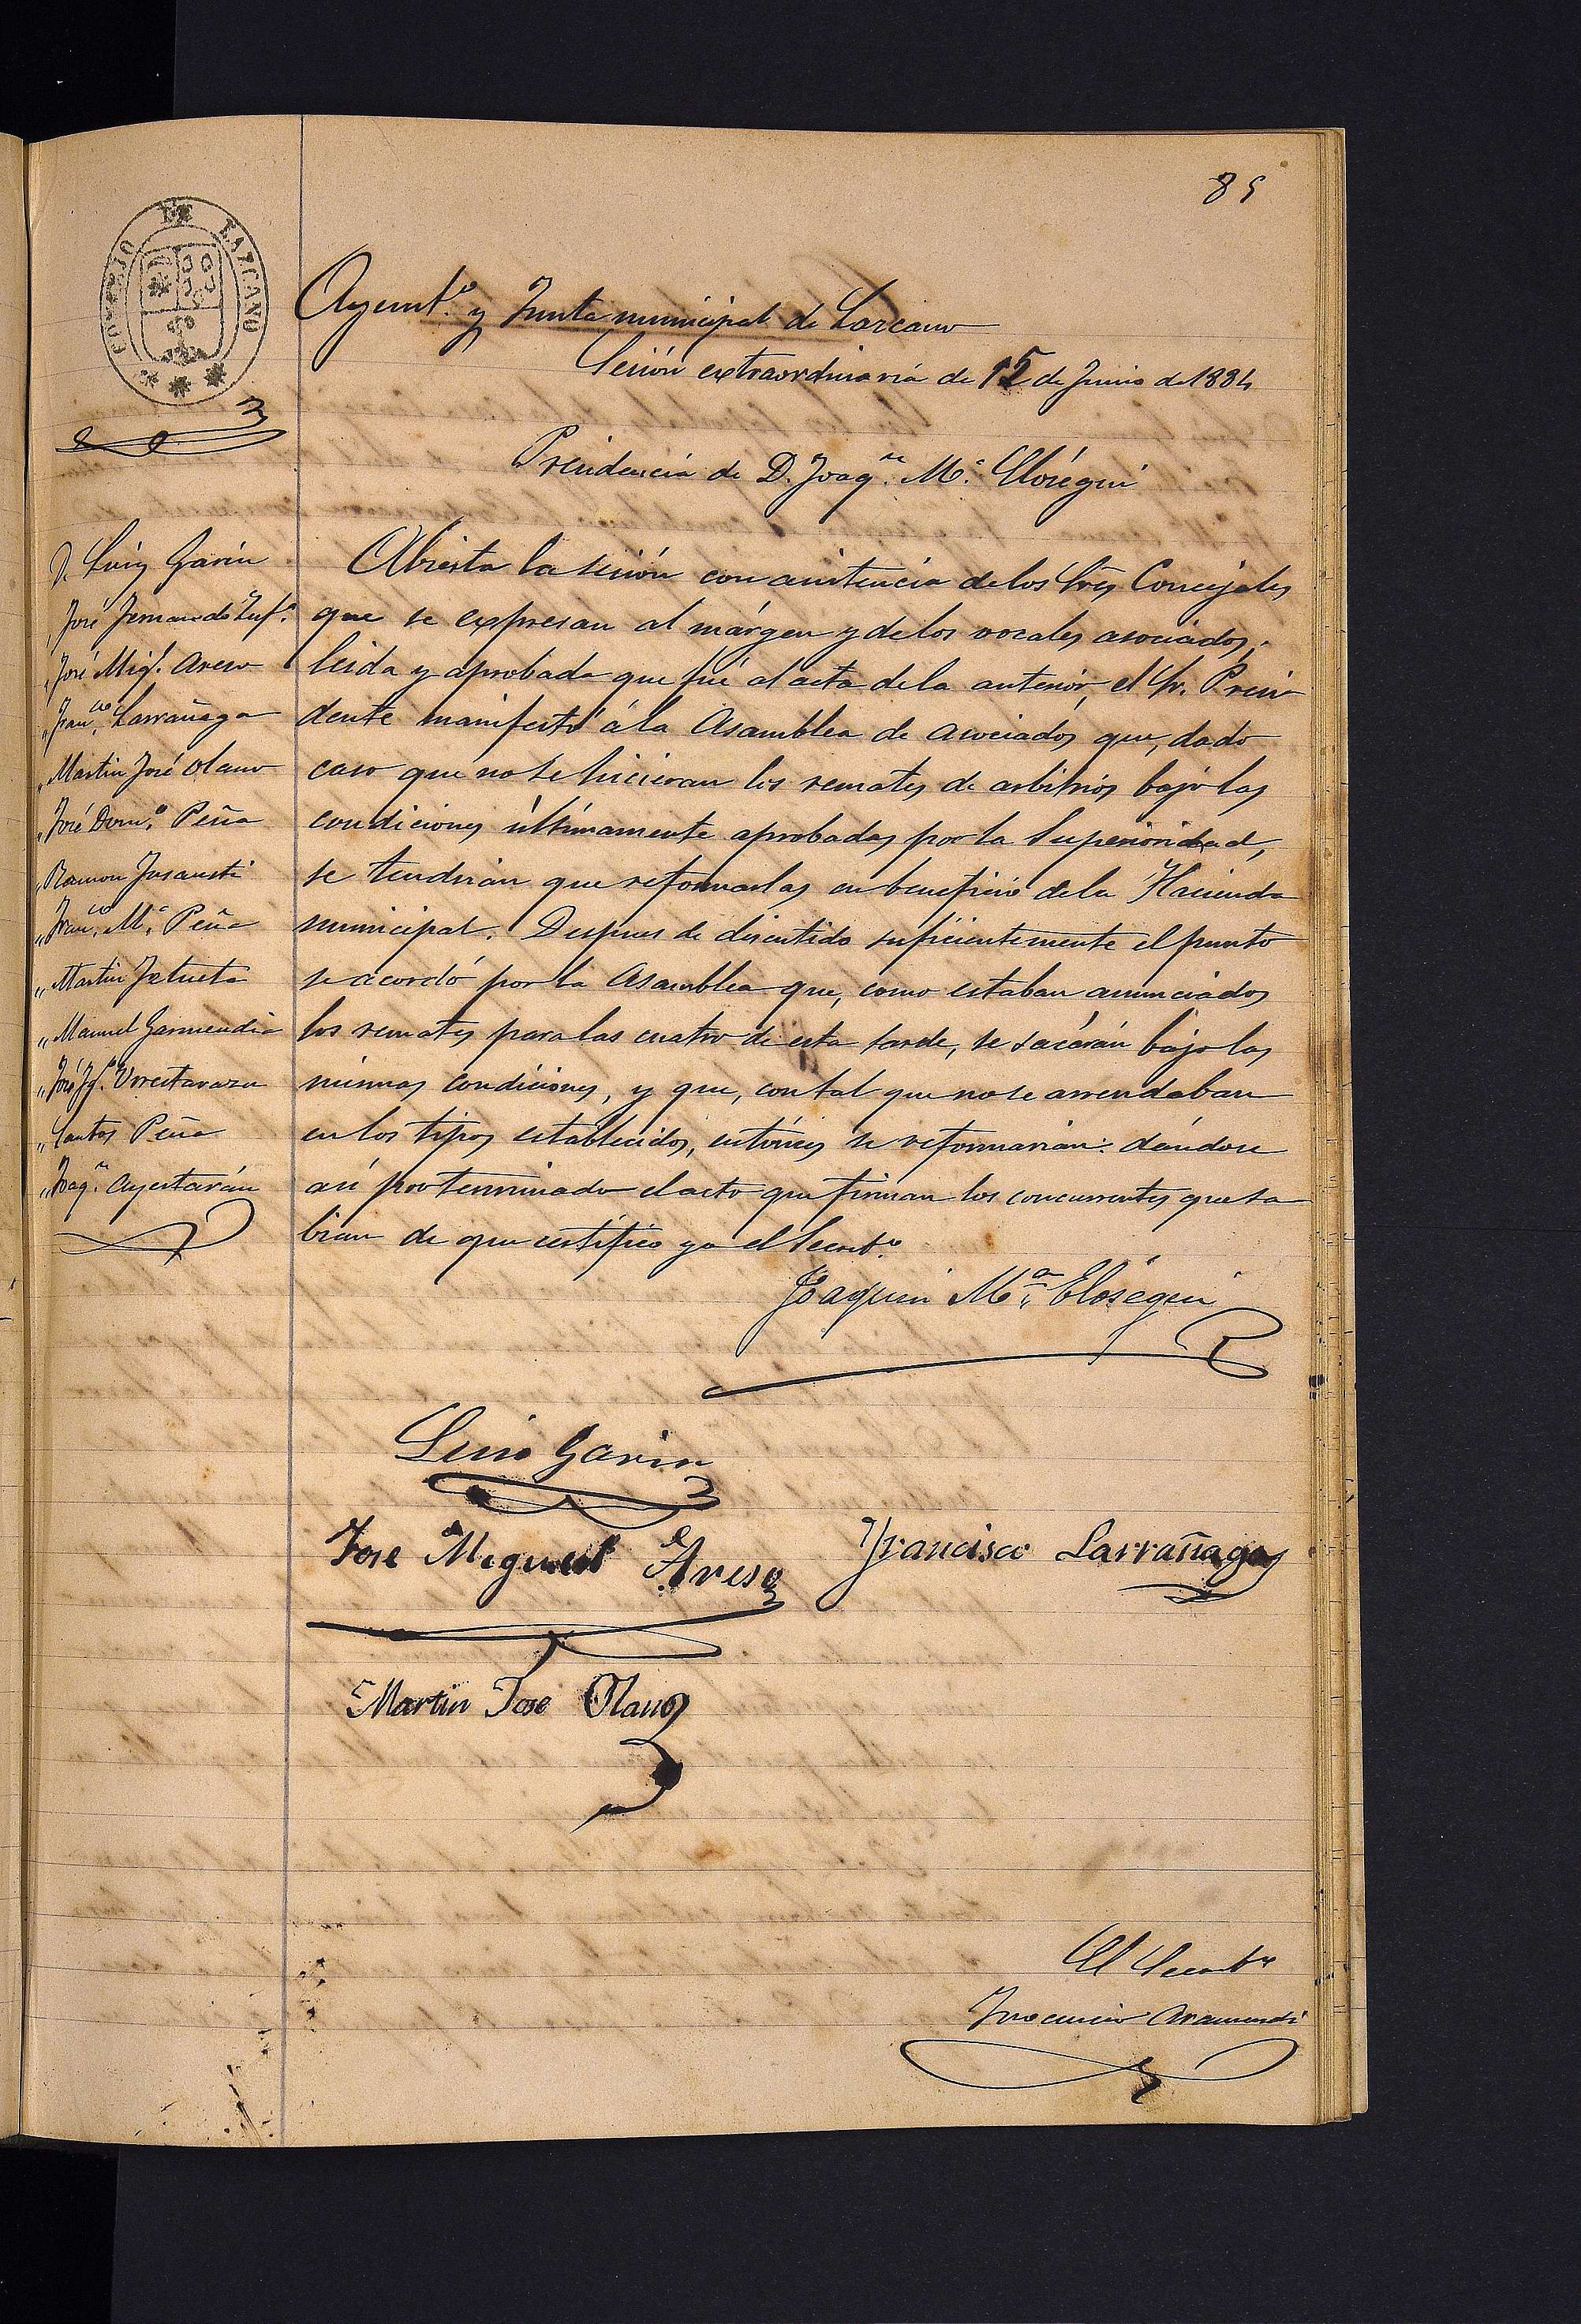 85
CONCEJO DE LAZCANO
Ayunt.º y Junta municipal de Lazcano
Sesión extraordinaria de 15 de Junio de 1884
Presidencia de D. Joaq.n M.ª Elósegui
D. Luis Garin
" José Fernando
" José Mig.l Areso
" Fran.co Larrañaga
" Martin José Olano
" José Dom.º Peña
" Ramon Jusausti
" Fran.co M.ª Peña
" Martin
" Manuel Garmendia
" José Ig.º Urrestarazu
" Santos Peña
" Joaq.n Ayestarán
Abierta la sesión con asistencia de los Sres Concejales
que se expresan al márgen y de los vocales asociados,
leida y aprobada que fué al acta de la anterior, el Sr. Presi
dente manifestó á la Asamblea de asociados que, dado
caso que no se hicieran los remates de arbitrios bajo las
condiciones últimamente aprobadas por la Superioridad,
se tendrian que reformarlas en beneficio de la Hacienda
municipal. Despues de discutido suficientemente el punto
se acordó por la Asamblea que, como estaban anunciados
los remates para las cuatro de esta tarde, se sacarán bajo las
mismas condiciones, y que, con tal que no se arrendaban
en los tipos establecidos, entónces se reformarian: dándose
asi por terminado el acto que firman los concurrentes que sa
bian de que certifico yo el Secret.º
Joaquin M.ª Elósegui
Luis Garin
Jose Miguel Areso
Francisco Larrañaga
Martin Jose Olano
El Secret.º
Inocencio Aramendi